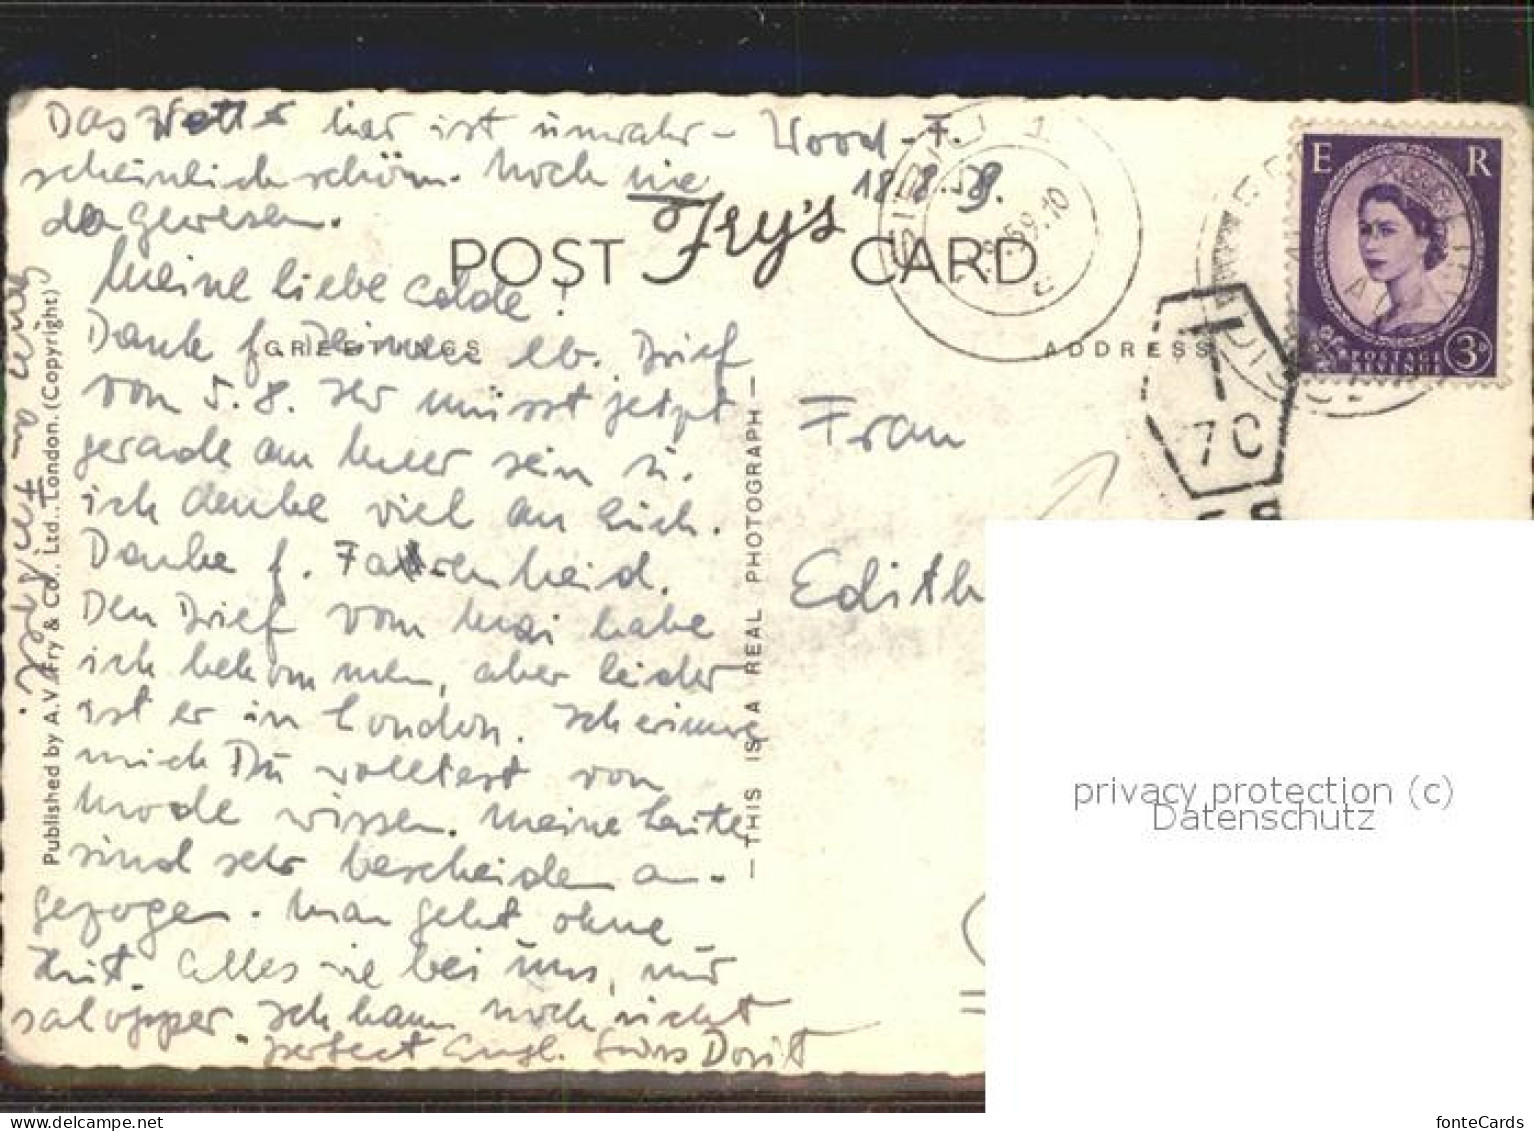 Das Wetter hier ist unwahr-
scheinlich schön. Noch nie
dagewesen.
Wood-F.
18.8.59.
POST Fry's CARD
GREETINGS
ADDRESS
E R
POSTAGE
REVENUE
3D
T
7C
Meine liebe
Danke f. Deinen lb. Brief
von 5.8. Ihr müsst jetzt
gerade am Meer sein u.
ich denke viel an Euch.
Danke f.
Den Brief vom Mai habe
ich bekommen, aber leider
ist er in London. Ich erinnre
mich Du wolltest von
Mode wissen. Meine Leute
sind sehr bescheiden an-
gezogen. Man geht ohne
Hut. Alles wie bei uns, nur
salopper. Ich kann noch nicht
perfect Engl. Dorit
Published by A.V. Fry & Co., Ltd., London. (Copyright)
— THIS IS A REAL PHOTOGRAPH —
Frau
Edith
privacy protection (c)
Datenschutz
fonteCards